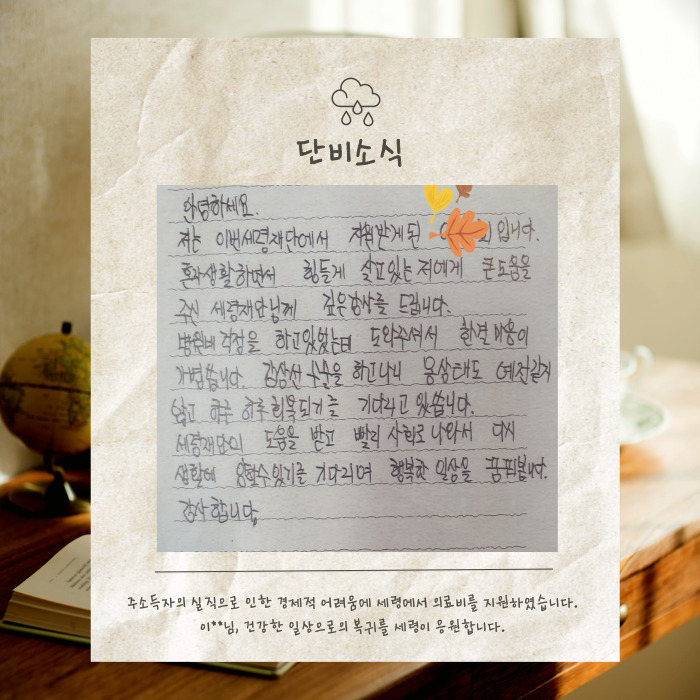 단비소식
안녕하세요.
저는 이번세령재단에서 지원받게된 입니다.
혼자생활하면서 힘들게 살고있는 저에게 큰도움을
주신 세령재단님께 깊은감사를 드립니다.
병원비 걱정을 하고있었는데 도와주셔서 한결 마음이
가볍습니다. 갑상선 수술을 하고나니 몸상태도 예전같지
않고 하루 하루 회복되기를 기다리고 있습니다.
세령재단의 도움을 받고 빨리 사회로 나와서 다시
생활해 기다리며 행복한 일상을 꿈꿔봅니다.
감사합니다.
주소득자의 실직으로 인한 경제적 어려움에 세령에서 의료비를 지원하였습니다.
이**님, 건강한 일상으로의 복귀를 세령이 응원합니다.